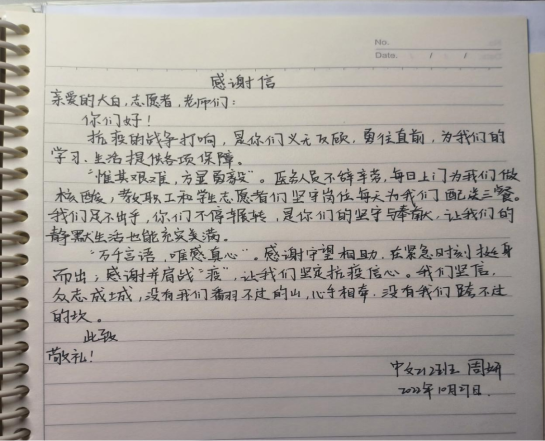 No.
Date. / /
感谢信
亲爱的大白,志愿者,老师们:
你们好!
抗疫的战争打响,是你们义无反顾,勇往直前,为我们的
学习、生活提供各项保障。
“惟其艰难,方显勇毅”。医务人员不辞辛劳,每日上门为我们做
核酸,教职工和学生志愿者们坚守岗位每天为我们配送三餐。
我们足不出户,你们不停辗转,是你们的坚守与奉献,让我们的
静默生活也能充实美满。
“万千言语,唯感真心”。感谢守望相助,在紧急时刻挺身
而出,感谢并肩战“疫”,让我们坚定抗疫信心。我们坚信,
众志成城,没有我们翻不过的山,心手相牵,没有我们跨不过
的坎。
此致
敬礼!
中文 班 周
2022年10月 日.